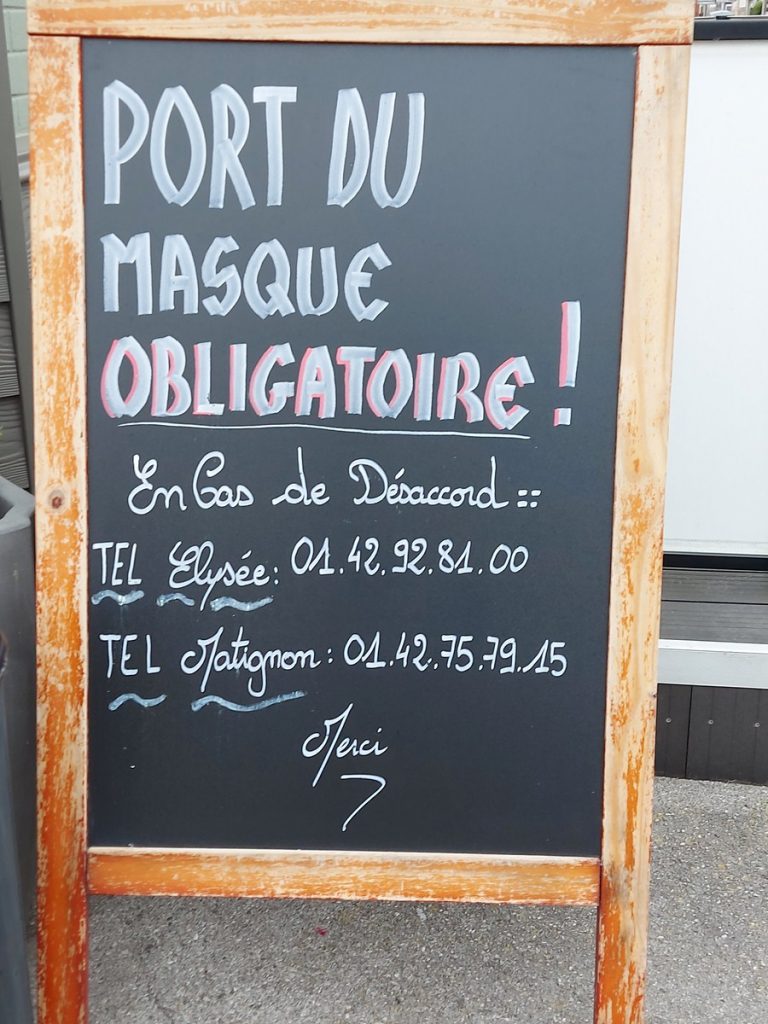 PORT DU
MASQUE
OBLIGATOIRE !
En Cas de Désaccord ::
TEL Elysée: 01.42.92.81.00
TEL Matignon: 01.42.75.79.15
Merci